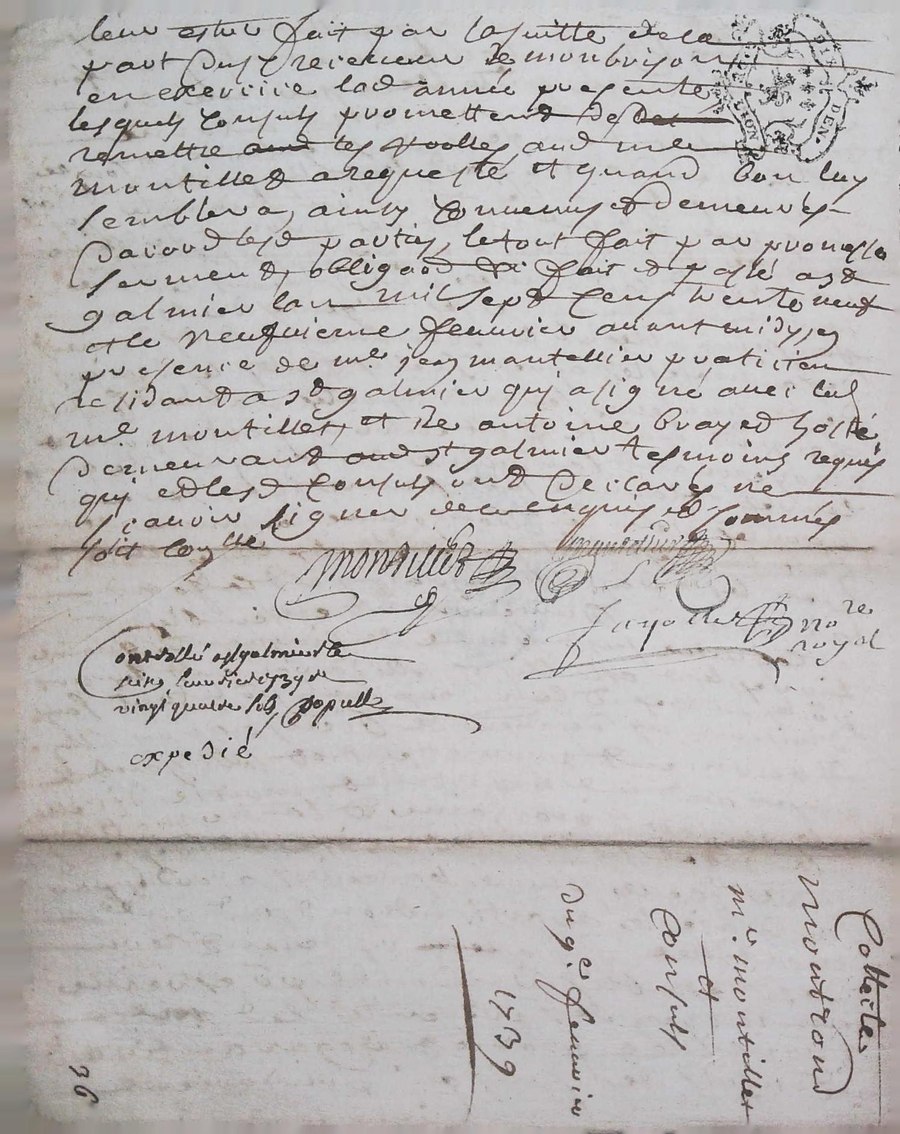 leur estre fait par la suitte de la
part du Sr receveur de montbrison
en exercice lad année presente
lesquels consuls promettent de
remettre les roolles aud me
montillet a requeste et quand bon luy
semblera, ainsy convenus et demeurés
d'acord lesd parties, le tout fait par promesse
serment, obligaon fait et passé a st
galmier lan mil sept cens trente neuf
et le neufvieme fevrier avant midy, en
presence de me jean mantellier praticien
residant a st galmier qui a signé avec led
me montillet, et de antoine brayet hoste
demeurant aud st galmier tesmoins requis
qui et lesd consuls ont declarés ne
scavoir signer de ce enquis et sommés
soit conlle
montillet
mantellier
nore
royal
Controllé a st galmier le
fevrier 1739 re
vingt quatre sols
expedié
DEN.
Collecte
Montrond
me. montillet
et
Consuls
du 9e. fevrier
1739
36